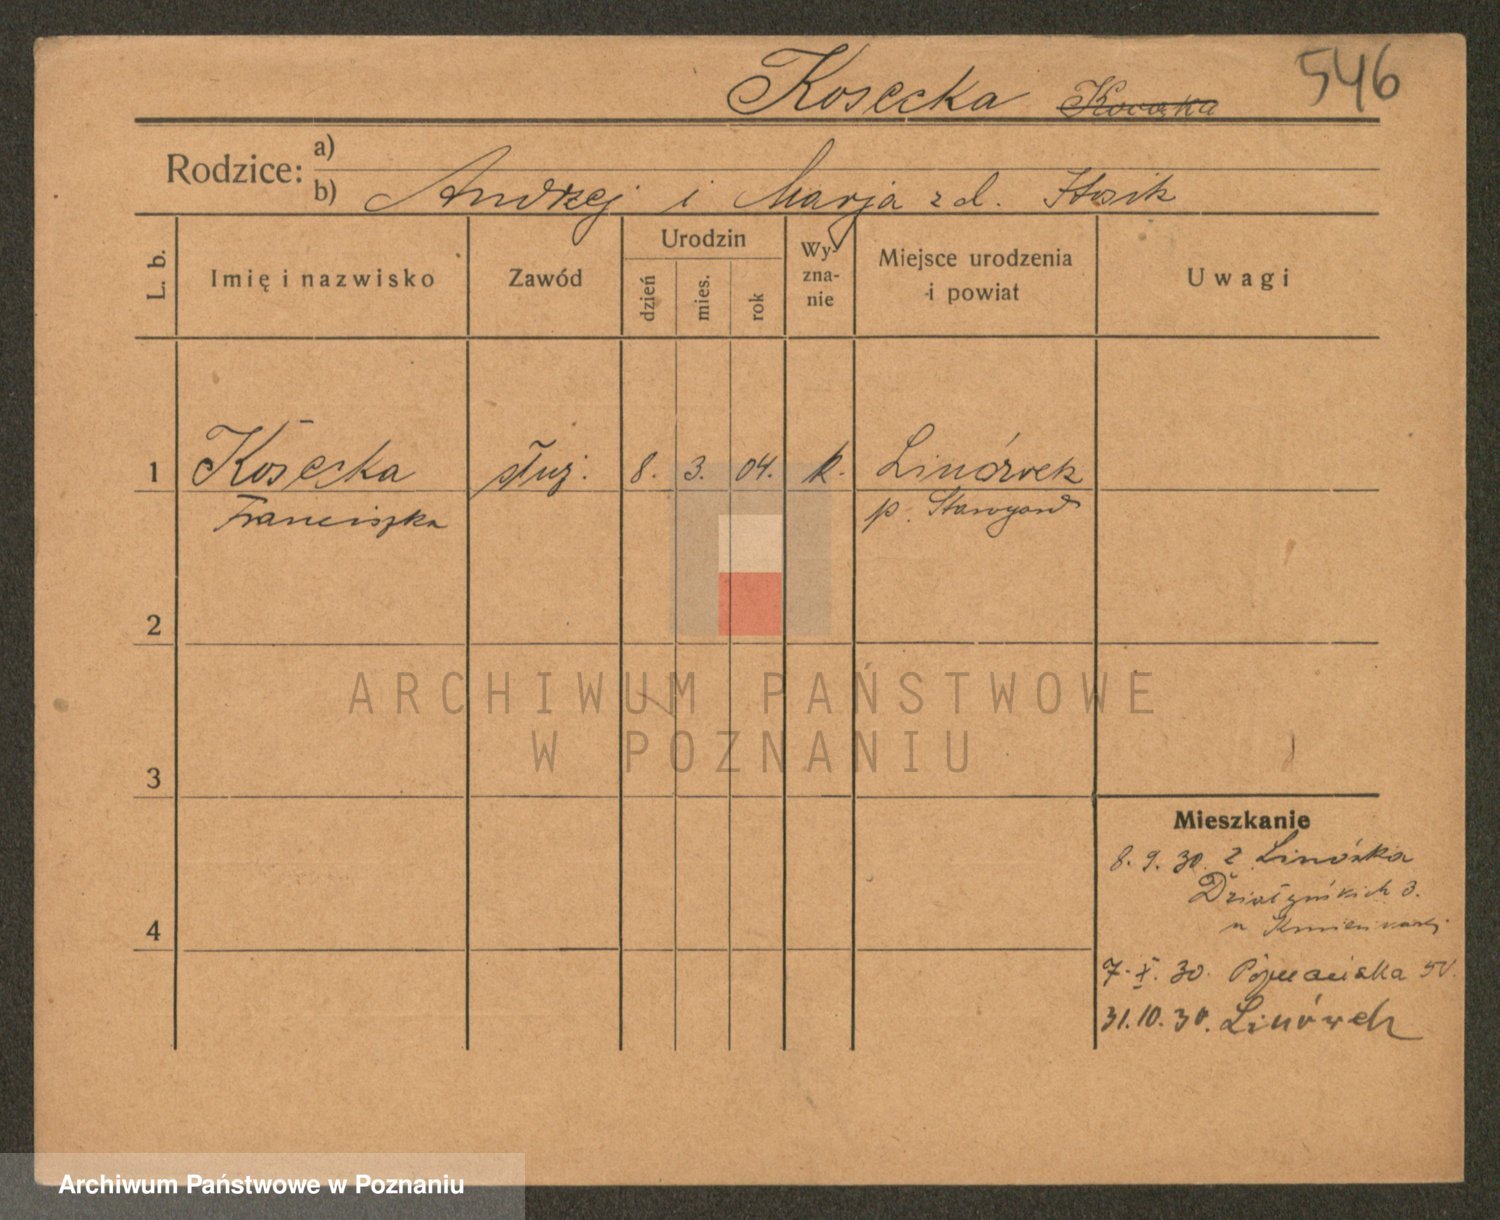 546
Kosecka
Rodzice:
a)
b) Andrzej i Marja z d.
L. b.
Imię i nazwisko
Zawód
Urodzin
dzień
mies.
rok
Wy-
zna-
nie
Miejsce urodzenia
i powiat
Uwagi
1 Kosecka służ. 8. 3. 04. k. Linówek
Franciszka p. Starogard
2
3
4
ARCHIWUM PAŃSTWOWE
W POZNANIU
Mieszkanie
8. 9. 30. z Linówka
Działyńskich 3.
u
7. X. 30.
31. 10. 30. Linówek
Archiwum Państwowe w Poznaniu